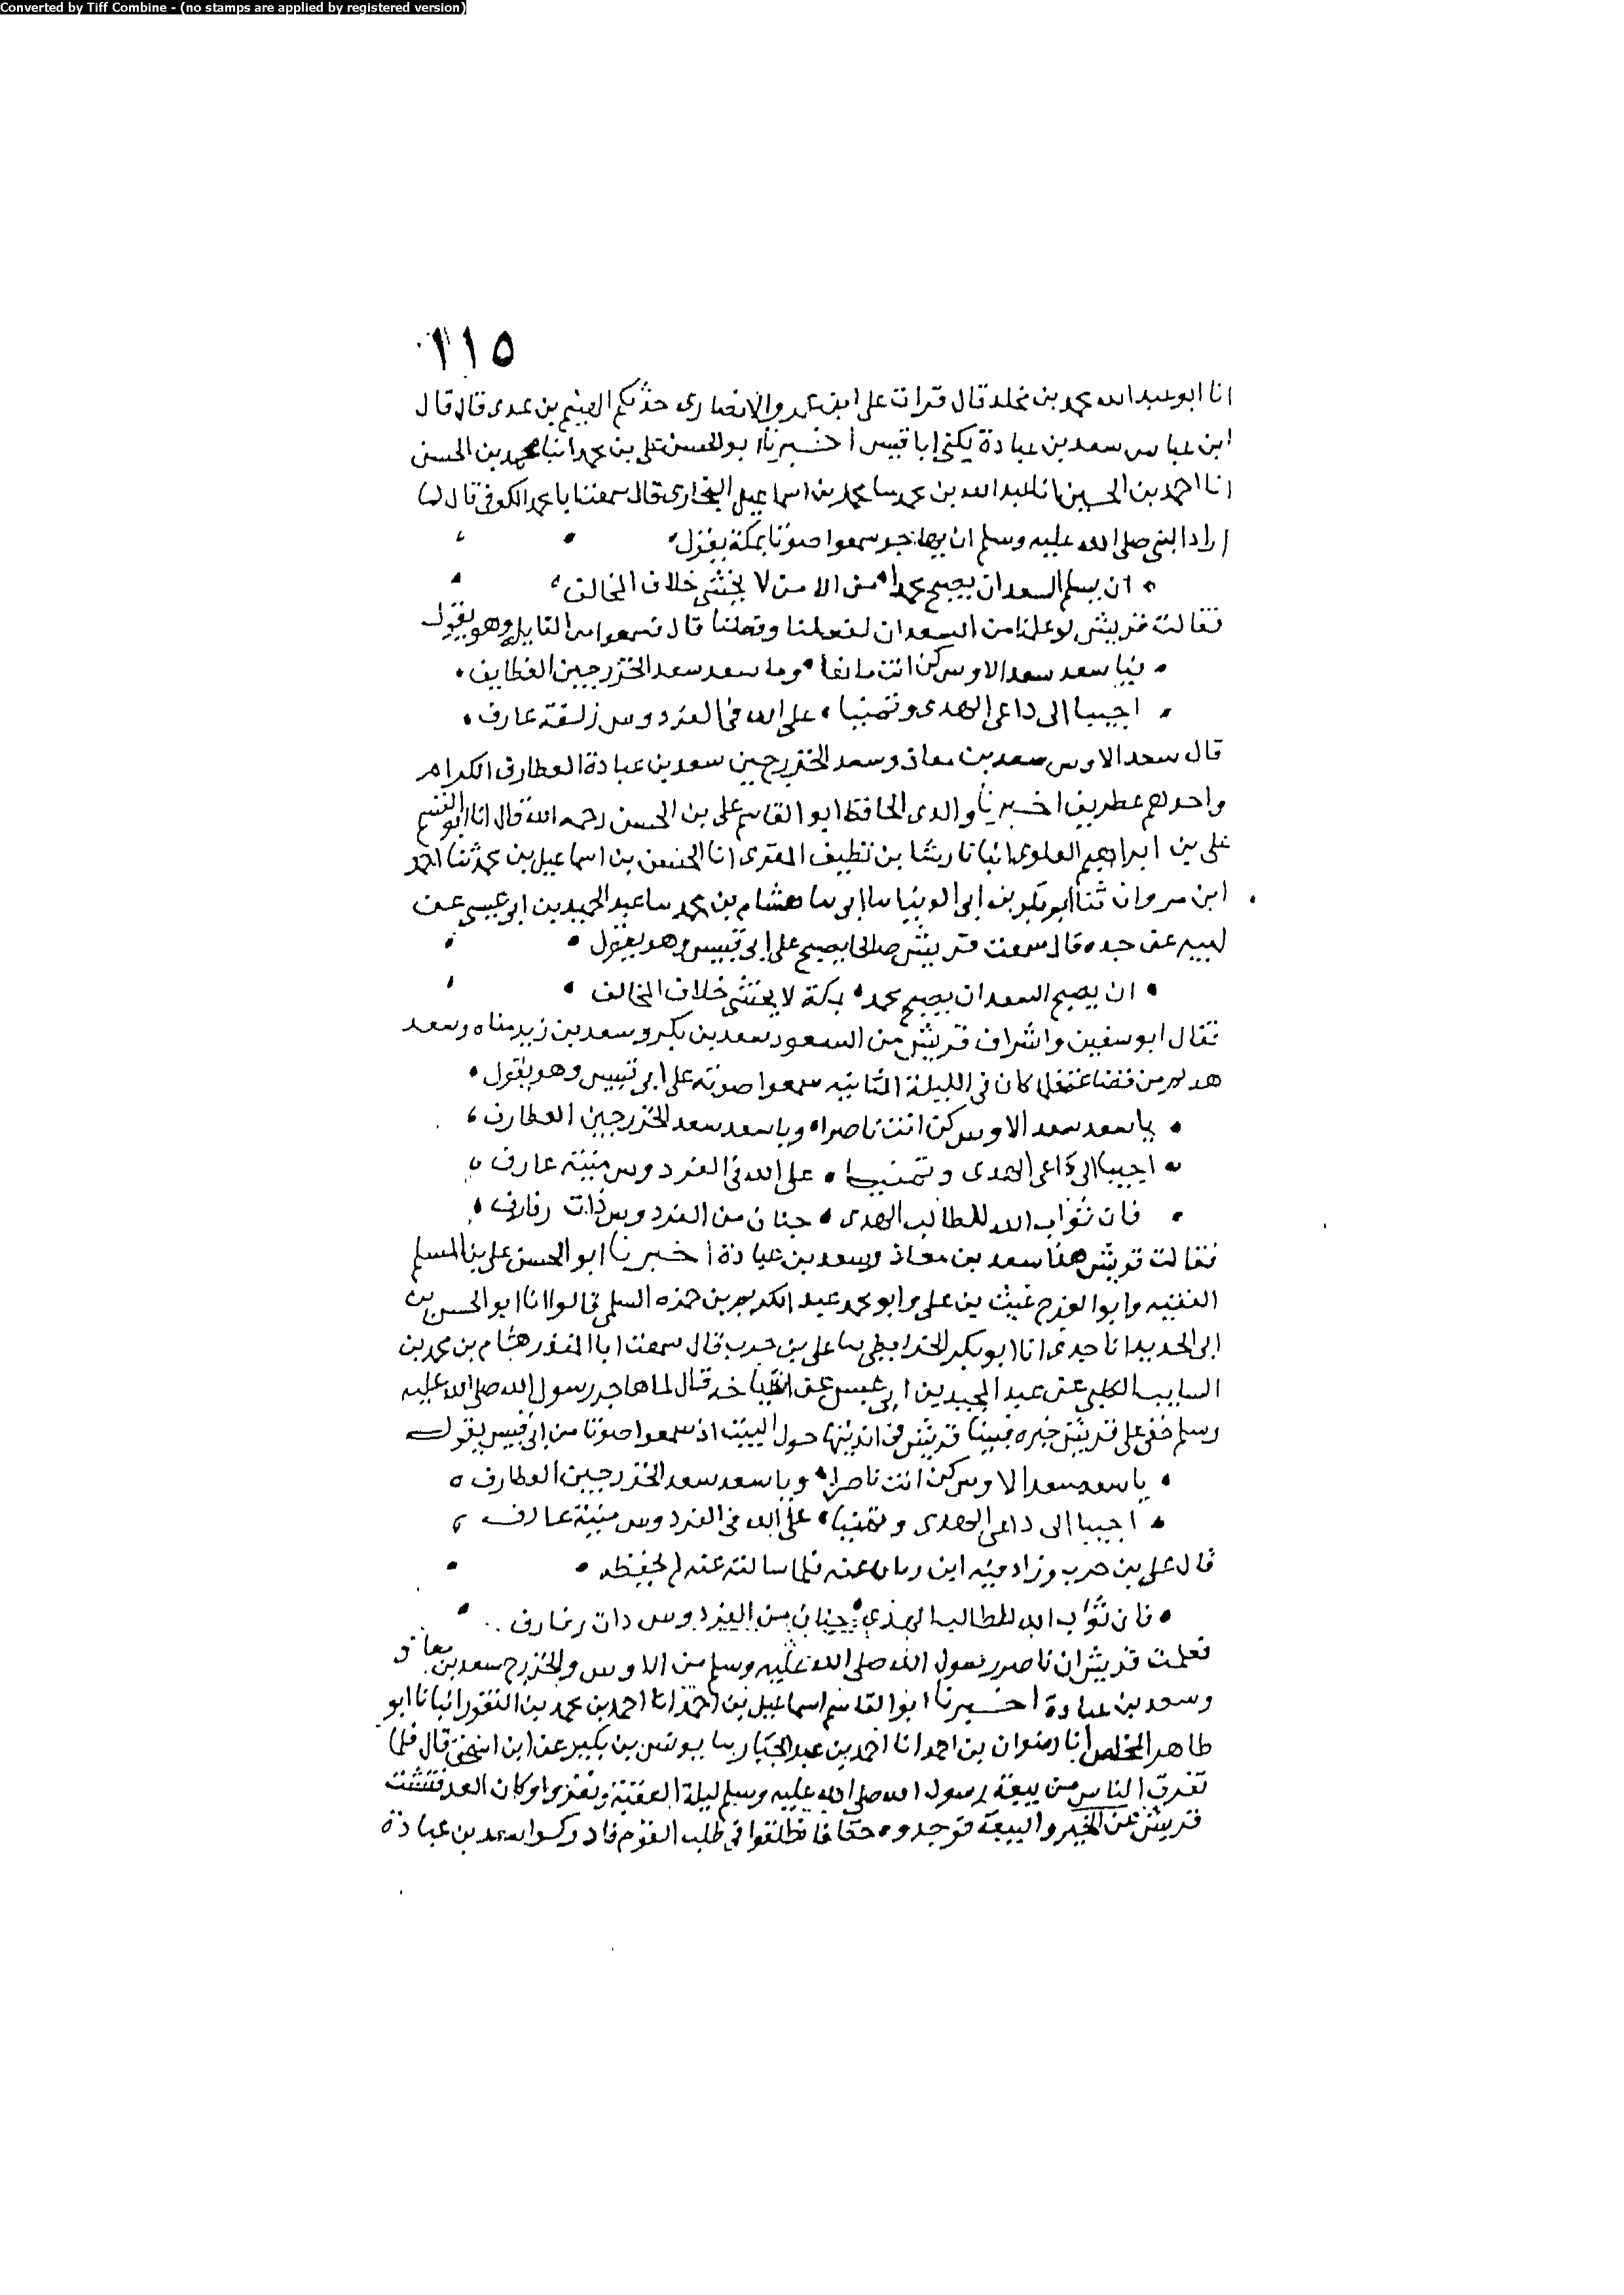 Converted by Tiff Combine - (no stamps are applied by registered version)
١١٥
انا ابو عبد الله محمد بن مخلد قال قرات على ابن عمرو الانصارى حدثكم الهيثم بن عدى قال قال
ابن عباس سعد بن عبادة يكنى ابا قيس اخبرنا ابو الحسن على بن محمد انبا محمد بن الحسن
انا احمد بن الحسين انا عبد الله بن محمد سا محمد بن اسماعيل البخارى قال سمعنا با محمد الكوفى قال لما
اراد النبى صلى الله عليه وسلم ان يهاجر سمعوا صوتا بمكة يقول
ان يسلم السعدان يصبح محمد من الامن لا يخشى خلاف المخالف
فقالت قريش لو علمنا من السعدان لفعلنا وفعلنا قال فسمعوا من القايل وهو يقول
فيا سعد سعد الاوس كن انت مانعا وما سعد سعد الخزرجين الغطايف
اجيبا الى داعى الهدى وتمنيا على الله فى الفردوس زلفة عارف
قال سعد الاوس سعد بن معاذ وسعد الخزرجين سعد بن عبادة الغطارف الكرام
واحدهم غطريف اخبرنا والدى الحافظ ابو القاسم على بن الحسن رحمه الله قال انا ابو القسم
على بن ابراهيم العلوى انبانا رشا بن نظيف المقرى انا الحسن بن اسماعيل بن محمد ثنا احمد
ابن مروان ثنا ابو بكر بن ابى الدنيا سا ابى سا هشام بن محمد سا عبد الحميد بن ابى عيسى عن
ابيه عن جده قال سمعت قريش صالحا يصيح على ابى قبيس وهو يقول
ان يصبح السعدان يصبح محمد بمكة لا يخشى خلاف المخالف
فقال ابو سفين واشراف قريش من السعود سعد بن بكر وسعد بن زيد مناه وسعد
هديم من قضاعة فلما كان فى الليلة الثانيه سمعوا صوته على ابى قبيس وهو يقول
يا سعد سعد الاوس كن انت ناصرا ويا سعد سعد الخزرجين الغطارف
اجيبا الى داعى الهدى وتمنيا على الله فى الفردوس منية عارف
فان ثواب الله للطالب الهدى جنان من الفردوس ذات رفارف
فقالت قريش هذا سعد بن معاذ وسعد بن عبادة اخبرنا ابو الحسن على بن المسلم
الفقيه وابو الفرج غيث بن على وابو محمد عبد الكريم بن حمزه السلمى قالوا انا ابو الحسن بن
ابى الحديد انا جدى انا ابو بكر الخرايطى سا على بن حرب قال سمعت ابا المنذر هشام بن محمد بن
السايب الكلبى عن عبد المجيد بن ابى عبس عن قال لما هاجر رسول الله صلى الله عليه
وسلم خفى على قريش خبره فبينا قريش فى انديتها حول البيت اذ سمعوا صوتا من ابى قبيس يقول
يا سعد سعد الاوس كن انت ناصرا ويا سعد سعد الخزرجين الغطارف
اجيبا الى داعى الهدى وتمنيا على الله فى الفردوس منية عارف
قال على بن حرب وزاد فيه ابن عنه فلما سالته عنه لم يحفظه
فان ثواب الله للطالب الهدى جنان من الفردوس دات رفارف
فعلمت قريش ان ناصر رسول الله صلى الله عليه وسلم من الاوس والخزرج سعد بن معاذ
وسعد بن عبادة اخبرنا ابو القاسم اسماعيل بن احمد انا احمد بن محمد بن النقور انبانا ابو
طاهر المخلص انا رضوان بن احمد انا احمد بن عبد الجبار سا يونس بن بكير عن ابن اسحق قال فلما
تفرق الناس من بيعة رسول الله صلى الله عليه وسلم ليلة العقبة ونفروا وكان الغد فتشت
قريش عن الخبر والبيعة فوجدوه حقا فانطلقوا فى طلب القوم فادركوا سعد بن عبادة